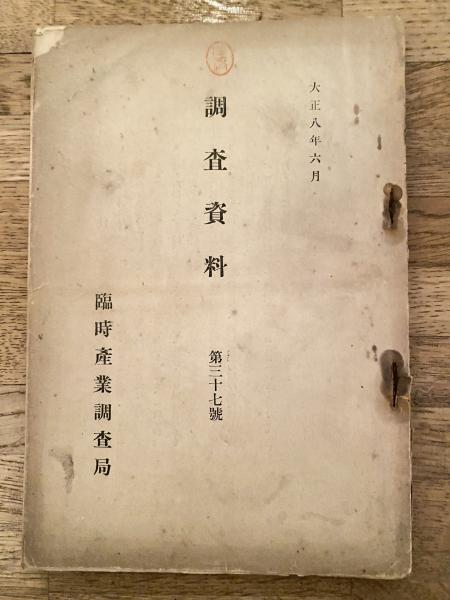 大正八年六月
調査資料 第三十七號
臨時產業調查局